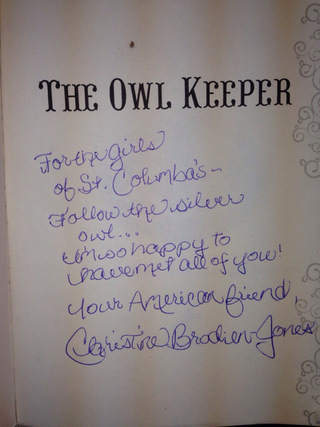 THE OWL KEEPER
For the girls
of St. Columba's -
Follow the silver
owl...
I'm so happy to
have met all of you!
Your American friend
Christine Brodien-Jones